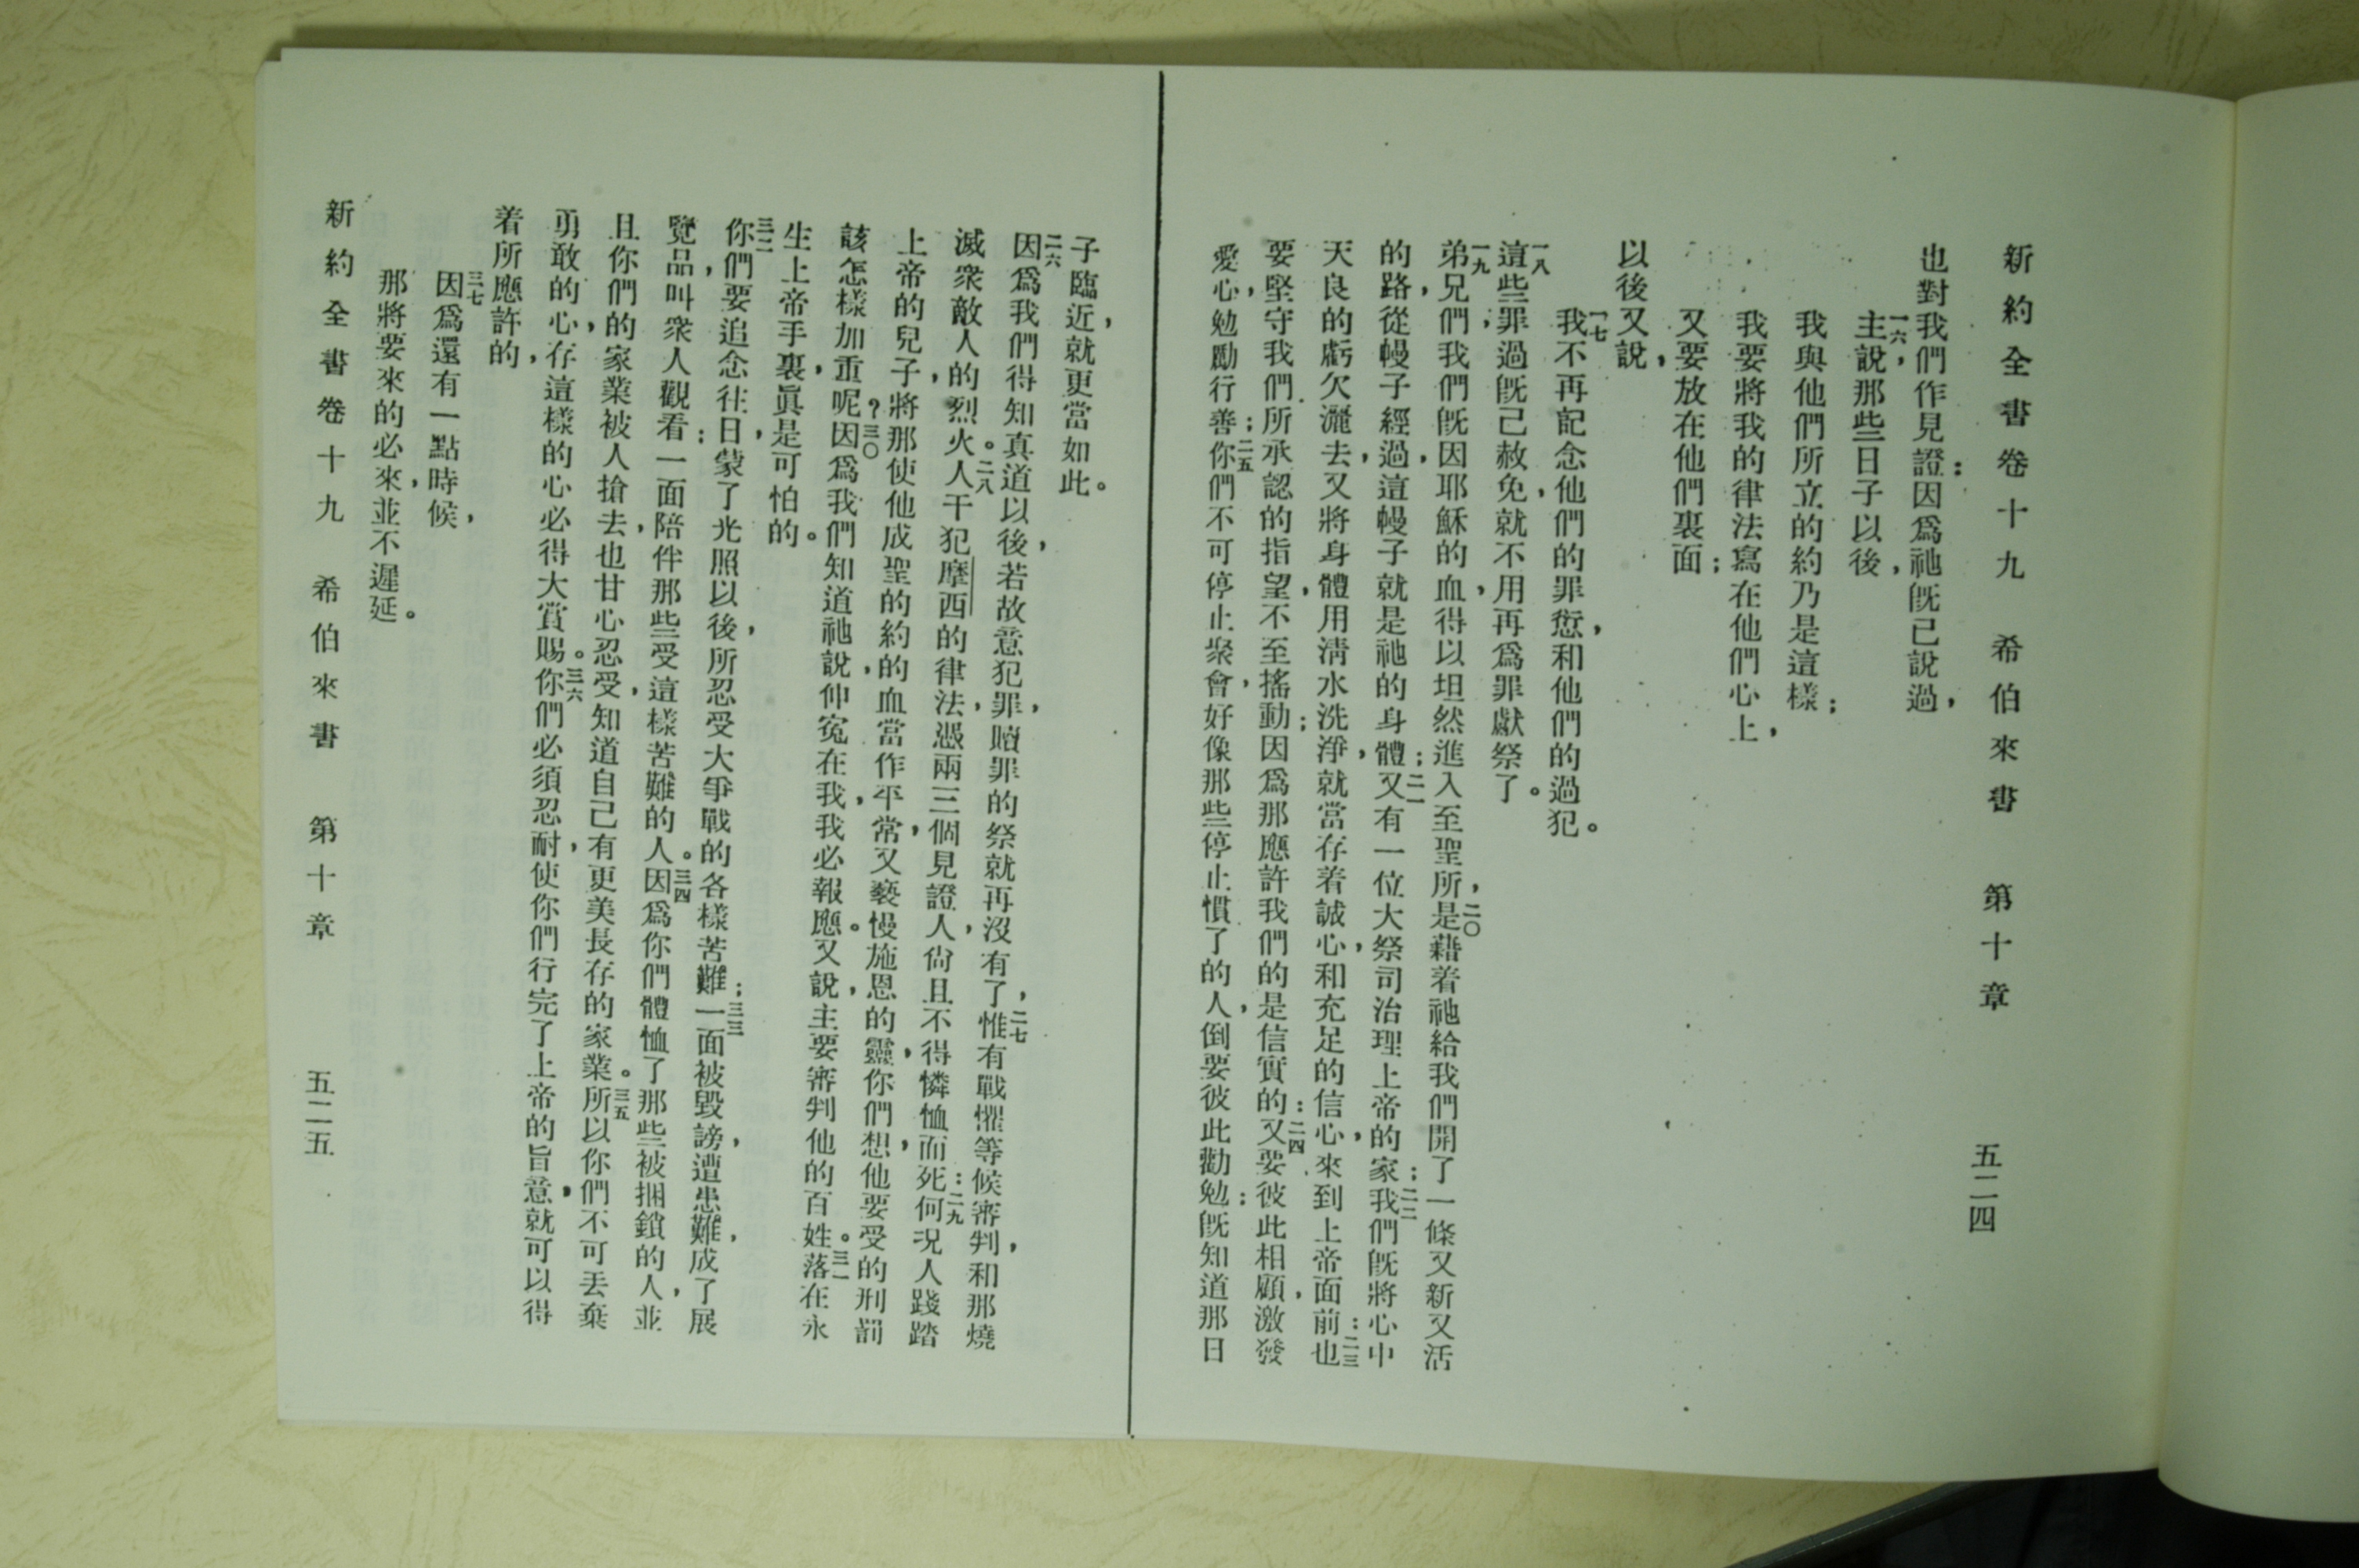 新約全書卷十九 希伯來書 第十章 五二四
也對我們作見證：因爲祂旣已說過，
一六主說，那些日子以後，
我與他們所立的約乃是這樣；
我要將我的律法寫在他們心上，
又要放在他們裏面；
以後又說，
一七我不再記念他們的罪愆，和他們的過犯。
一八這些罪過旣已赦免，就不用再爲罪獻祭了。
一九弟兄們，我們旣因耶穌的血，得以坦然進入至聖所，二〇是藉着祂給我們開了一條又新又活
的路，從幔子經過，這幔子就是祂的身體；二一又有一位大祭司治理上帝的家；二二我們旣將心中
天良的虧欠灑去，又將身體用淸水洗淨，就當存着誠心，和充足的信心，來到上帝面前：二三也
要堅守我們所承認的指望，不至搖動；因爲那應許我們的是信實的：二四又要彼此相顧，激發
愛心，勉勵行善；二五你們不可停止聚會，好像那些停止慣了的人，倒要彼此勸勉：旣知道那日
子臨近，就更當如此。
二六因爲我們得知真道以後，若故意犯罪，贖罪的祭就再沒有了，二七惟有戰懼等候審判，和那燒
滅衆敵人的烈火。二八人干犯摩西的律法，憑兩三個見證人，尙且不得憐恤而死：二九何況人踐踏
上帝的兒子，將那使他成聖的約的血當作平常，又褻慢施恩的靈，你們想，他要受的刑罰
該怎樣加重呢？三〇因爲我們知道祂說，伸冤在我，我必報應。又說，主要審判他的百姓。三一落在永
生上帝手裏，眞是可怕的。
三二你們要追念往日，蒙了光照以後，所忍受大爭戰的各樣苦難；三三一面被毀謗，遭患難，成了展
覽品，叫衆人觀看；一面陪伴那些受這樣苦難的人。三四因爲你們體恤了那些被捆鎖的人，並
且你們的家業被人搶去，也甘心忍受，知道自己有更美長存的家業。三五所以你們不可丟棄
勇敢的心，存這樣的心必得大賞賜。三六你們必須忍耐，使你們行完了上帝的旨意，就可以得
着所應許的，
三七因爲還有一點時候，
那將要來的必來，並不遲延。
新約全書卷十九 希伯來書 第十章 五二五